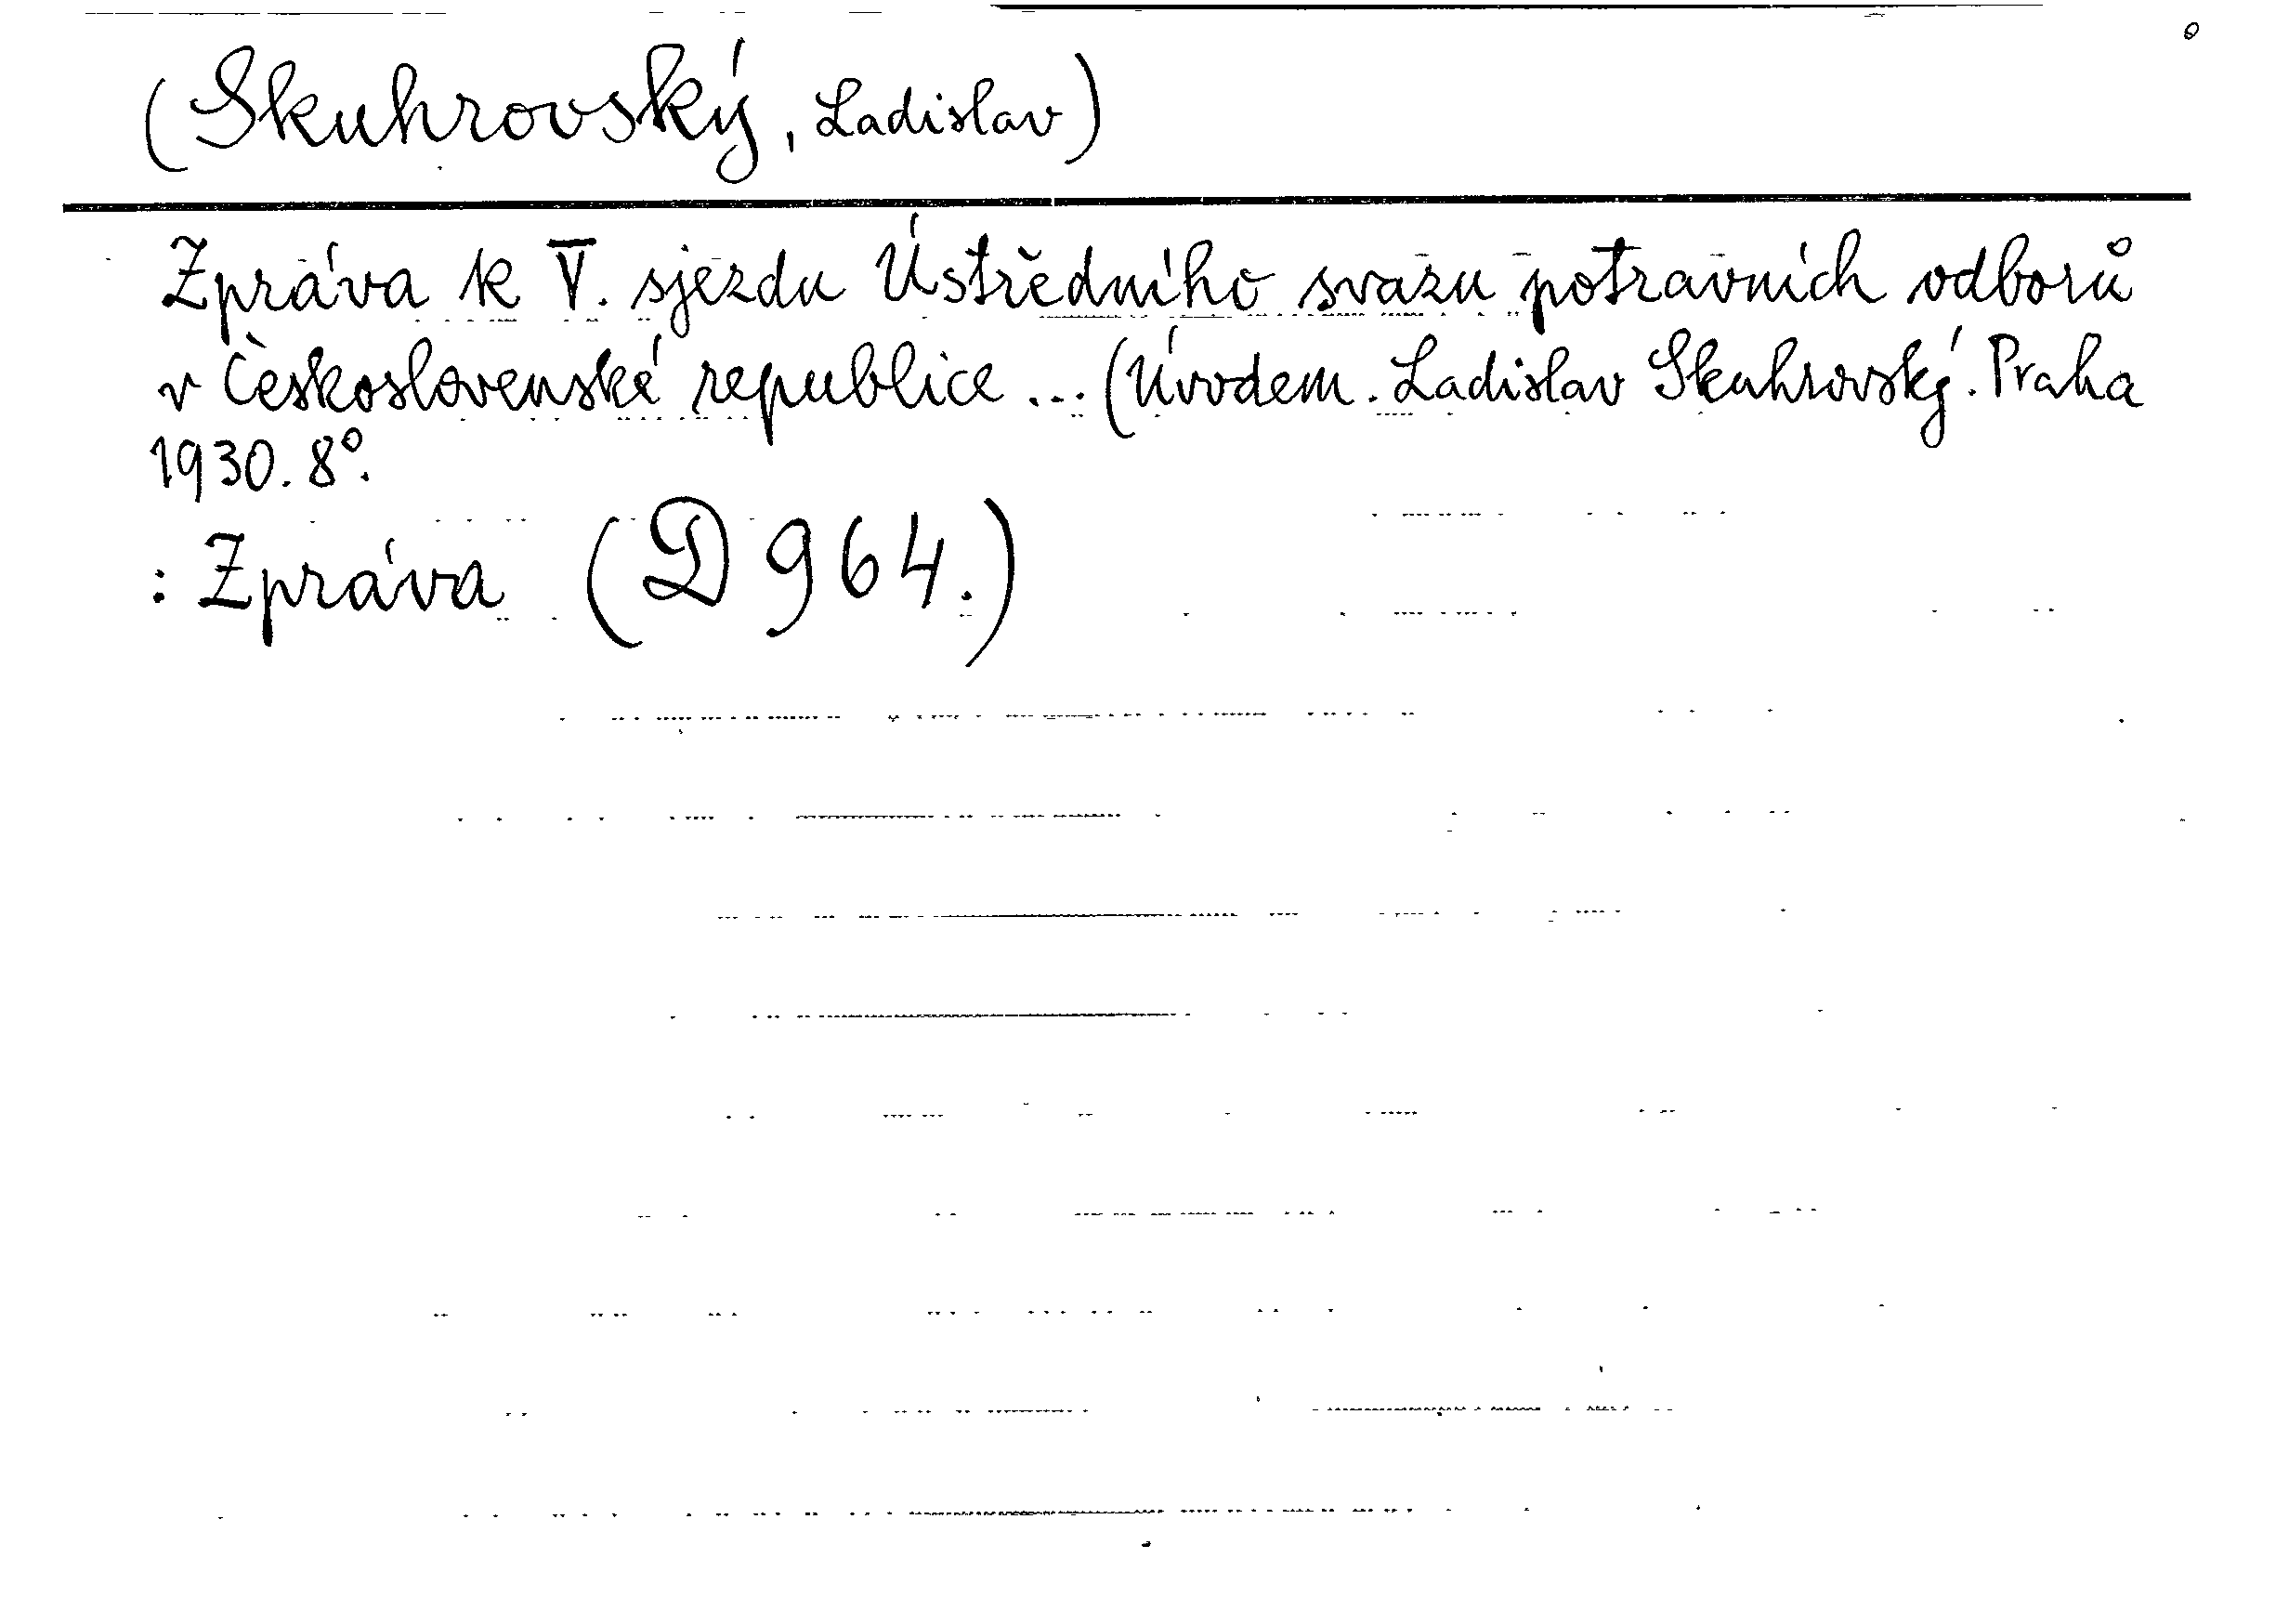 (Skuhrovský, Ladislav)
Zpráva k V. sjezdu Ústředního svazu potravních odborů
v Československé republice ... (Úvodem. Ladislav Skuhrovský. Praha
1930. 8°.
: Zpráva (D 964.)